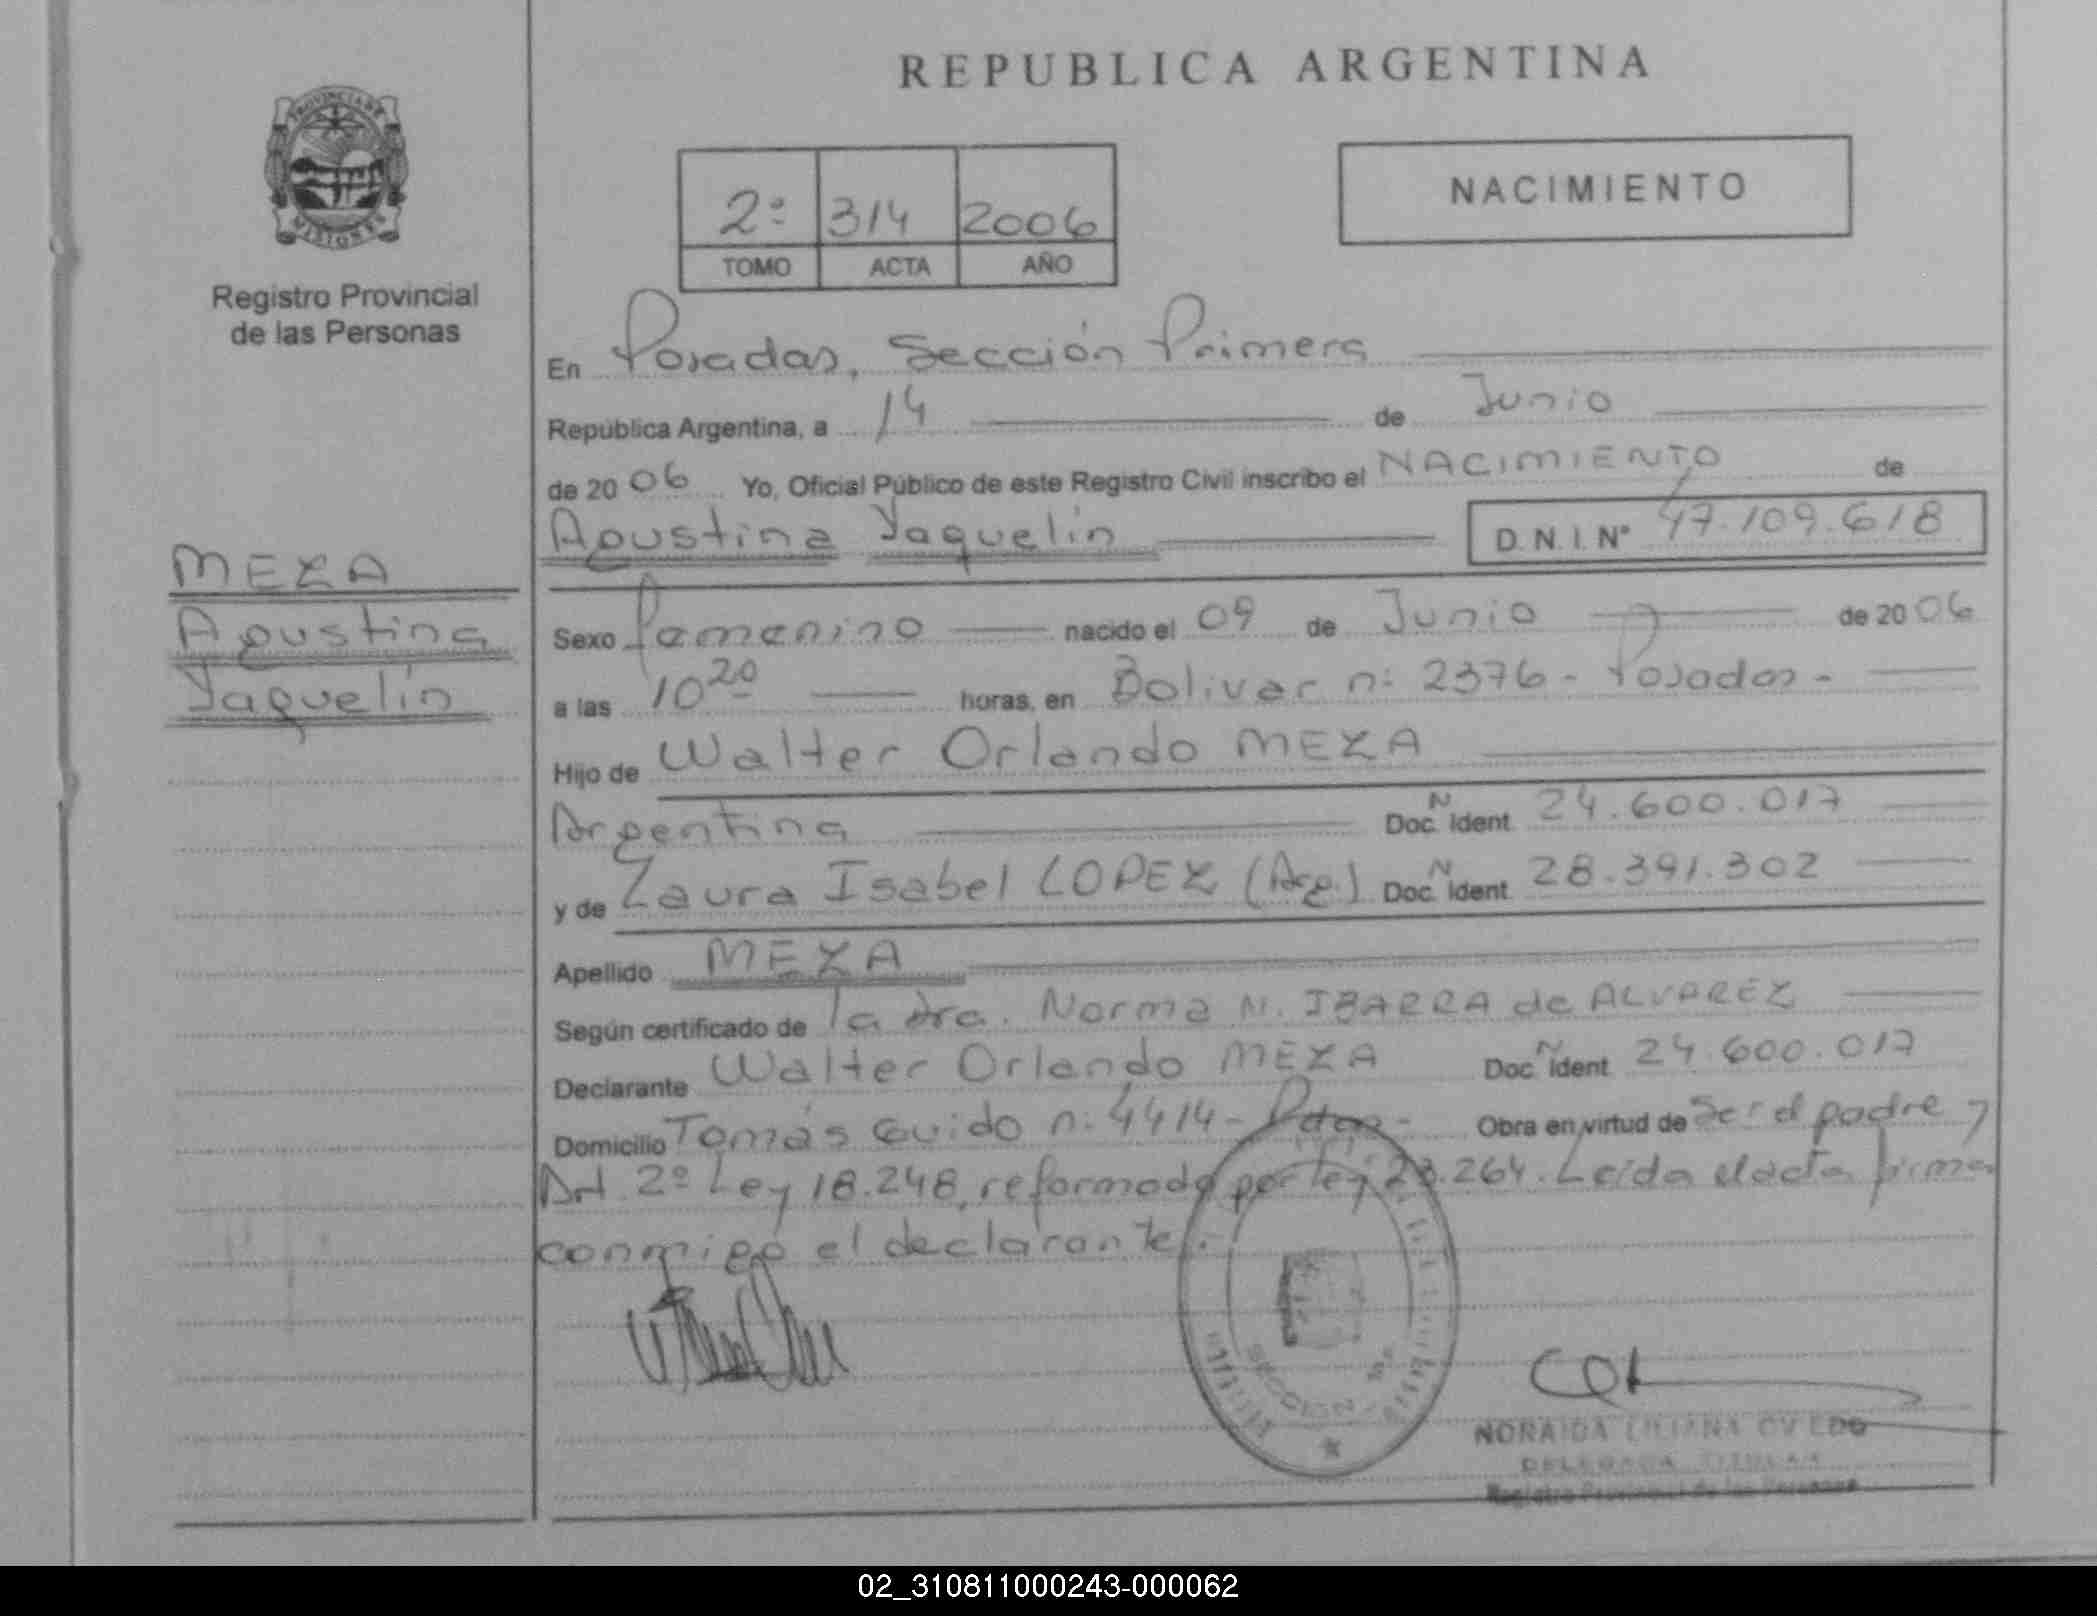 REPUBLICA ARGENTINA
PROVINCIA DE
MISIONES
Registro Provincial
de las Personas
2º 314 2006
TOMO ACTA AÑO
NACIMIENTO
En Posadas, Sección Primera
República Argentina, a 14 de Junio
de 2006 Yo, Oficial Público de este Registro Civil inscribo el NACIMIENTO de
Agustina Yaquelín D.N.I. Nº 47.109.618
MEZA
Agustina
Yaquelín
Sexo Femenino nacido el 09 de Junio de 2006
a las 10 20 horas, en Bolivar nº 2376 - Posadas -
Hijo de Walter Orlando MEZA
Argentina Doc. N Ident 24.600.017
y de Laura Isabel LOPEZ (Arg.) Doc. N Ident 28.391.302
Apellido MEZA
Según certificado de la dra. Norma N. IBARRA de ALVAREZ
Declarante Walter Orlando MEZA Doc N Ident 24.600.017
Domicilio Tomás Guido nº 4414 - Pdas - Obra en virtud de Ser el padre y
Art. 2º Ley 18.248, reformado por ley 23.264. Leída el acta firma
conmigo el declarante.
SECCION 1ra
NORAIDA LILIANA OVIEDO
DELEGADA TITULAR
Registro Provincial de las Personas
02_310811000243-000062